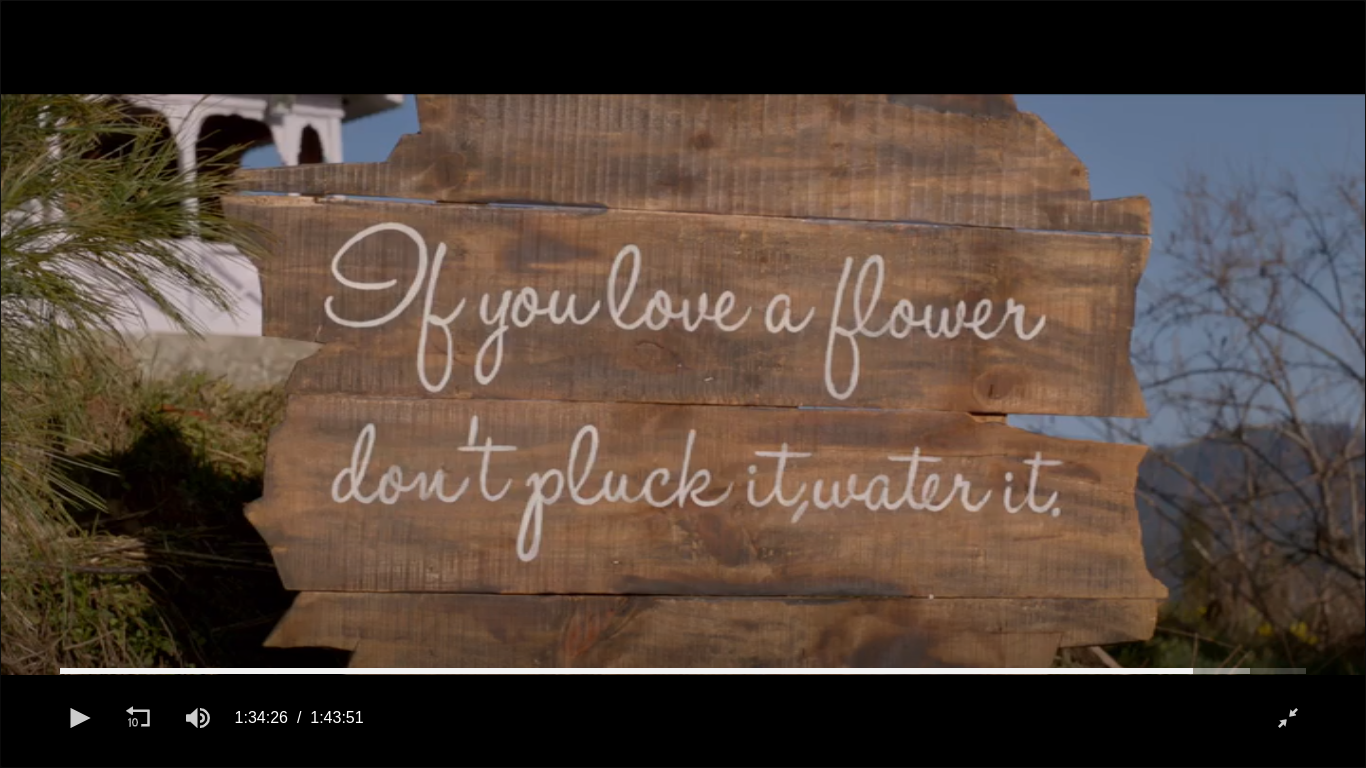 If you love a flower
don't pluck it, water it.
10 1:34:26 / 1:43:51